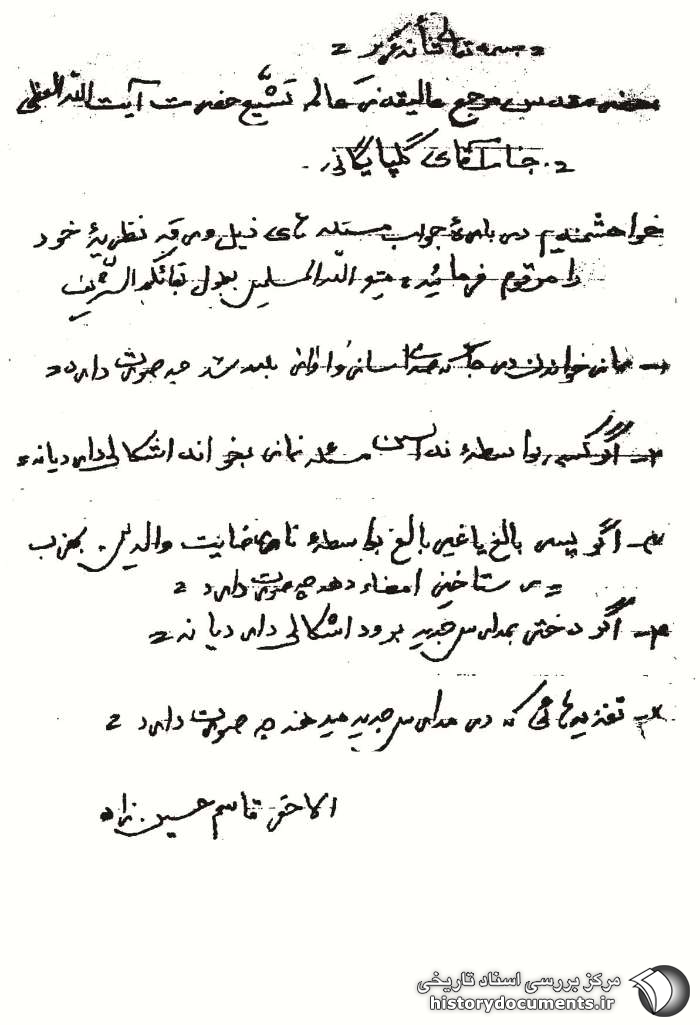 بسمه تعالی شأنه
محضر مقدس مرجع عالیقدر عالم تشیّع حضرت آیت الله العظمی
جناب آقای گلپایگانی
خواهشمندیم در بارهٔ جواب مسئله های ذیل ورقه نظریهٔ خود
را مرقوم فرمائید متع الله المسلمین بطول بقائکم الشّریف
۱ـ نماز خواندن در جائیکه صدای ساز و آواز بلند شد چه صورت دارد
۲ـ اگر کسی بواسطهٔ ندانستن مسئله نماز بخواند اشکالی دارد یا نه
۳ـ اگر پسر بالغ یا غیر بالغ بواسطهٔ نارضایت والدین بحزب
رستاخیز امضاء دهد چه صورت دارد
۴ـ اگر دختر بمدارس جدید برود اشکالی دارد یا نه
تغذیه هائی که در مدارس جدید میدهند چه صورت دارد
الاحقر قاسم حسین زاده
مرکز بررسی اسناد تاریخی
historydocuments.ir